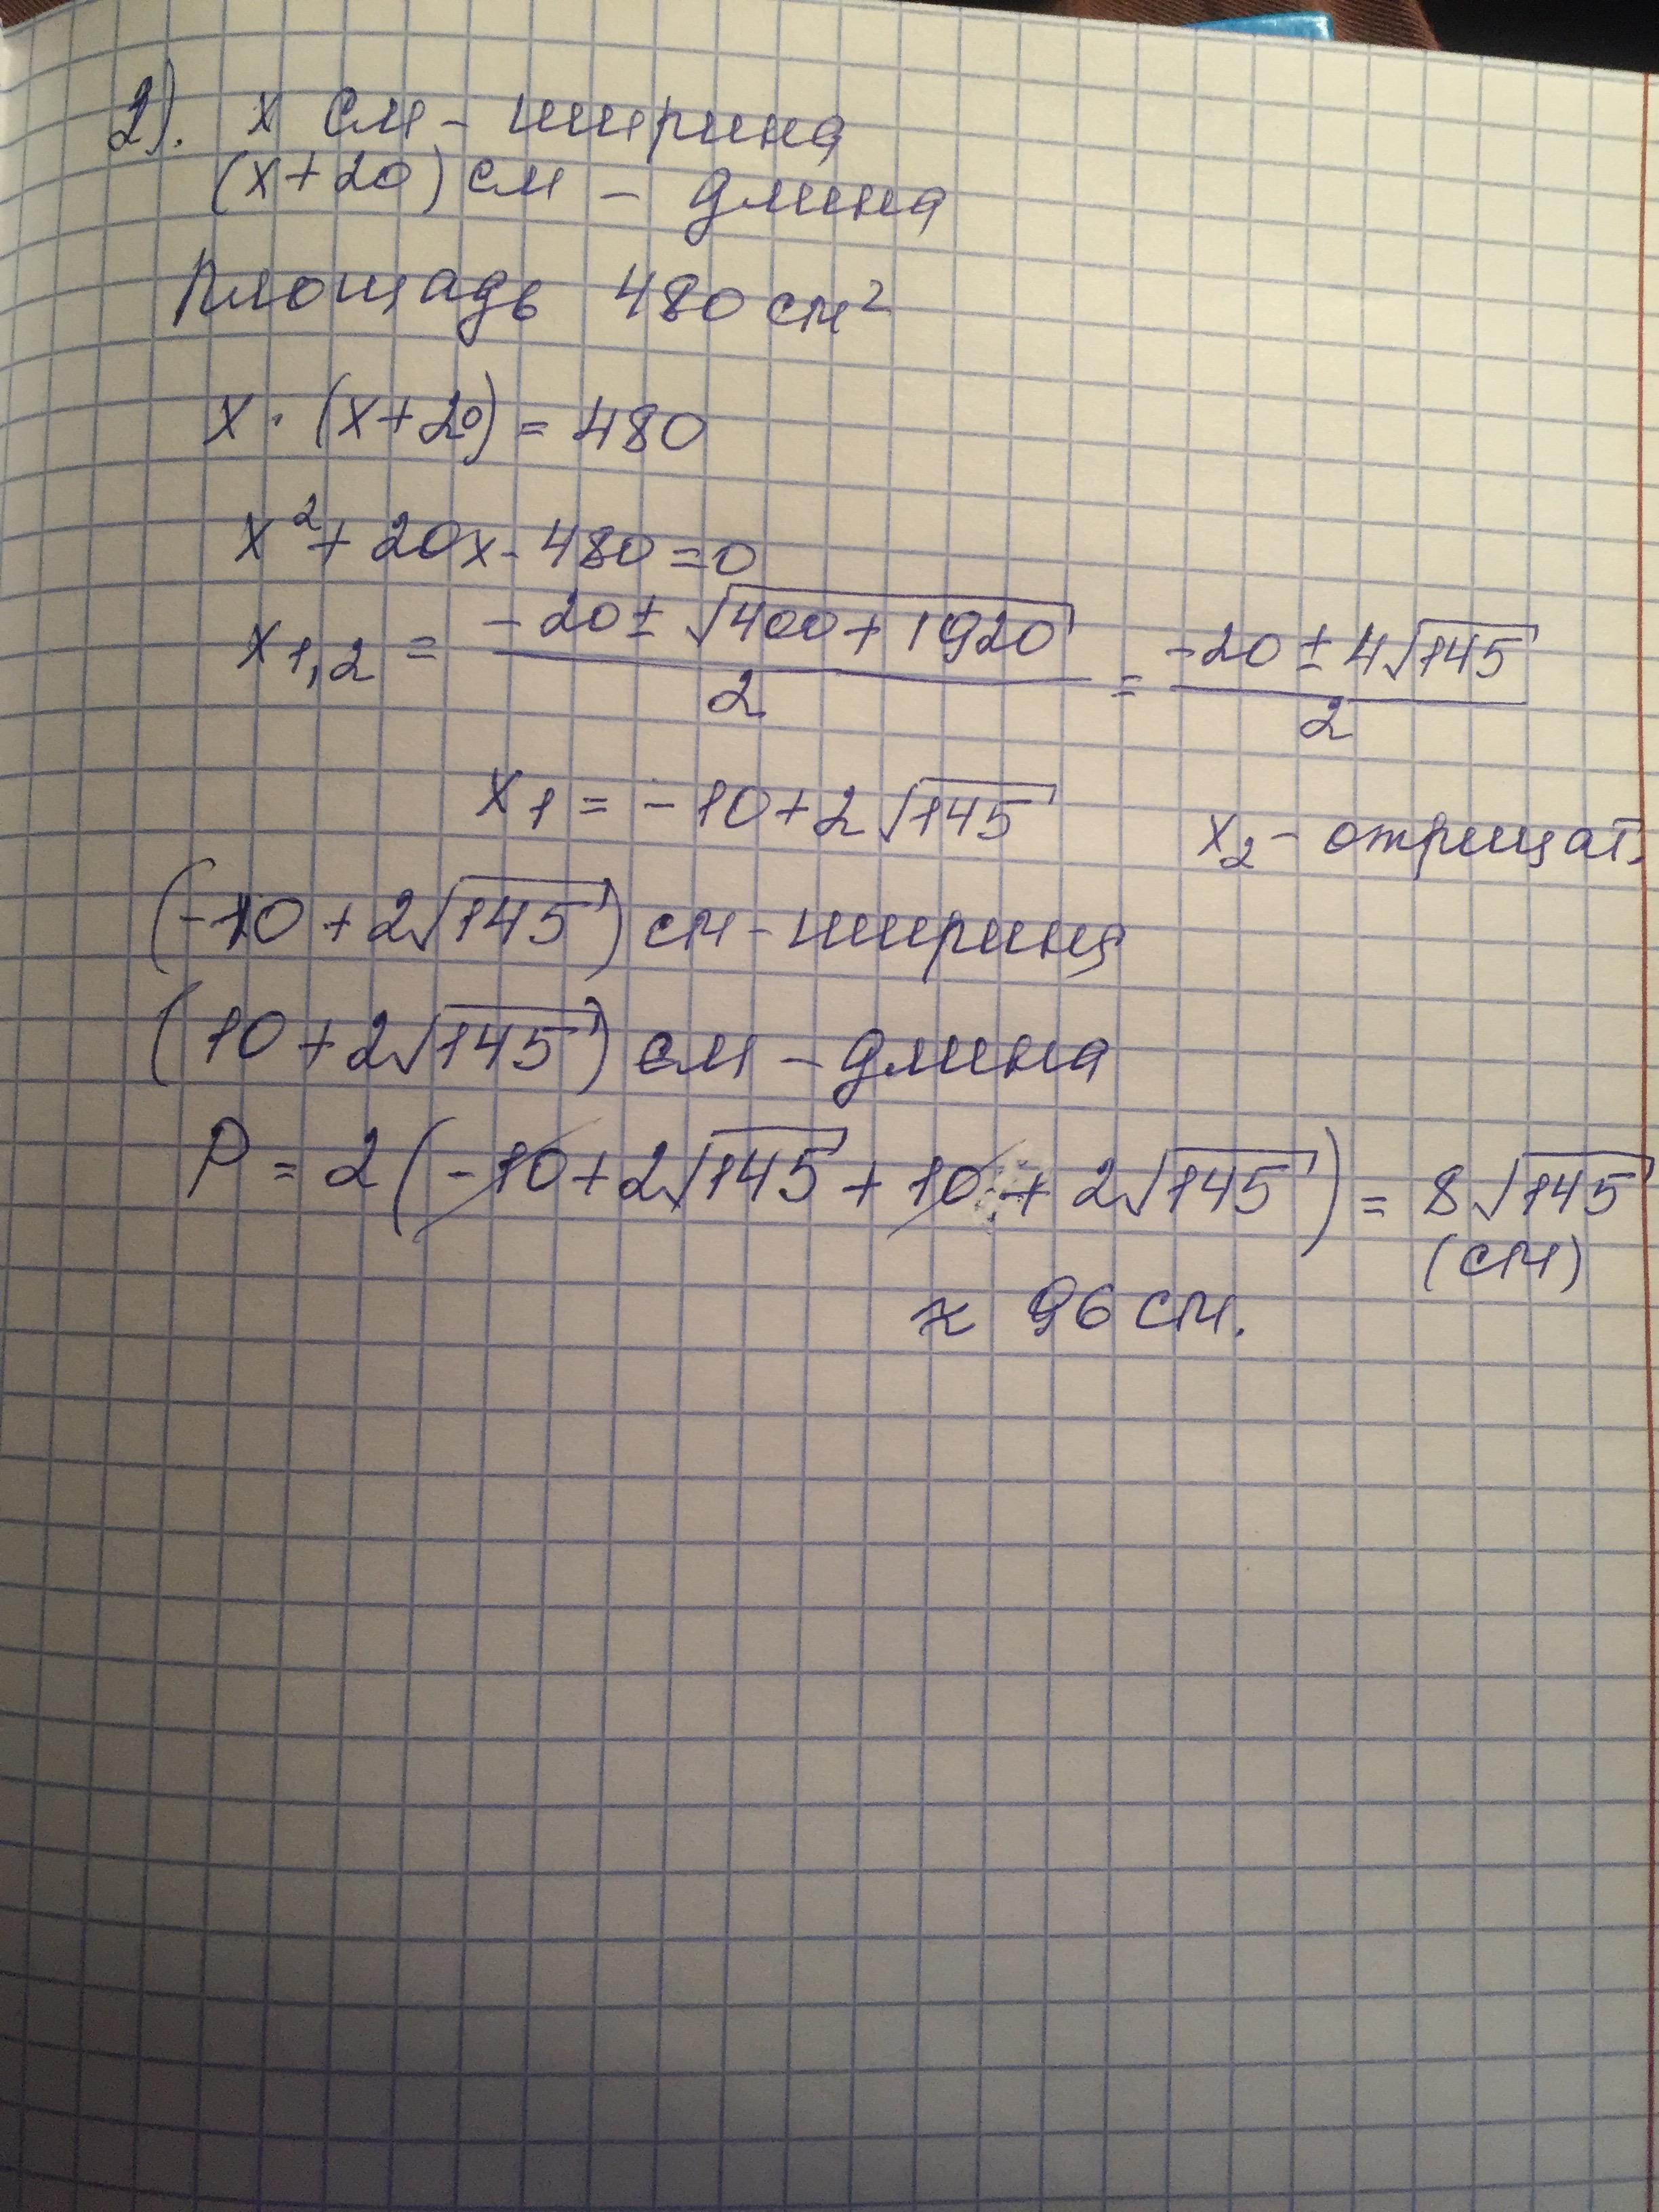 2). x см - ширина
(x+20) см - длина
Площадь 480 см²
x · (x+20) = 480
x² + 20x - 480 = 0
x₁,₂ = (-20 ± √(400 + 1920))/2 = (-20 ± 4√145)/2
x₁ = -10 + 2√145 x₂ - отрицат.
(-10 + 2√145) см - ширина
(10 + 2√145) см - длина
P = 2(-10 + 2√145 + 10 + 2√145) = 8√145
(см)
≈ 96 см.